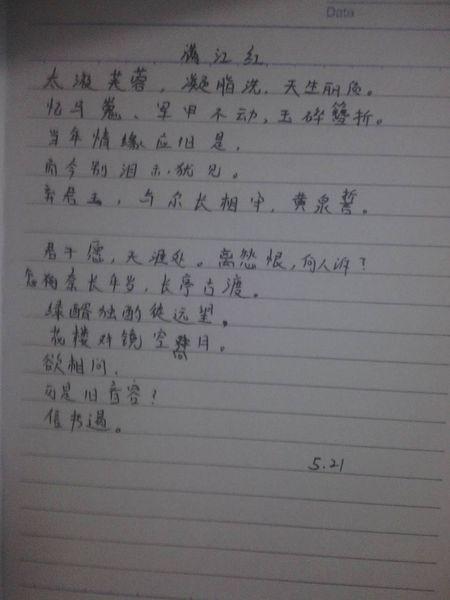 Date
满江红
太液芙蓉，凝脂洗，天生丽质。
忆马嵬、军甲不动，玉碎簪折。
当年情缘应旧是，
而今别泪未犹见。
弃君王，与尔长相守，黄泉誓。
君干愿，天涯处。离愁恨，向人诉？
怎独奈长年岁，长亭古渡。
绿醑独酌徒远望，
花楼对镜空 月。
欲相问，
可是旧音容？
但 过。
5.21